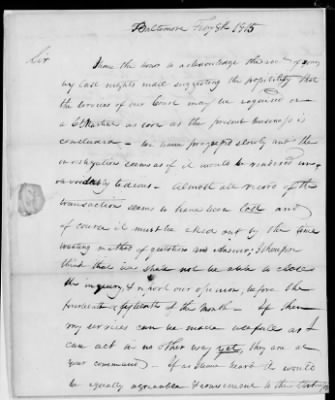 Baltimore Feby 8th 1815
Sir
I have the honor to acknowledge the receipt of yours
by last nights mail suggesting the propriety that
the services of our Court may be required on
a C Martial as soon as the present business is
concluded - We have progressed slowly and the
investigation seems as if it would be rendered
unavoidably tedious - Almost all record of the
transaction seems to have been lost and
of course it must be eked out by the time
wasting method of questions and answers; I therefore
think that we shall not be able to close
the inquiry, & report our opinion, before the
fourteenth or fifteenth of the month - If then
my services can be made usefull as I
can act in no other way yet, they are at
your command - If as some heard it would
be equally agreeable & convenient to the